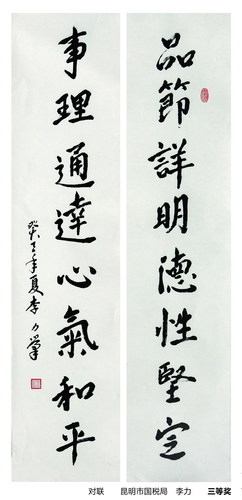 品節詳明德性堅定
事理通達心氣和平
年夏李力
对联 昆明市国税局 李力 三等奖